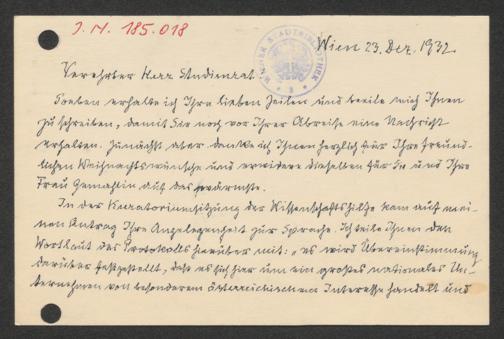 J. N. 185.018
WIENER STADTBIBLIOTHEK
Wien 23. Dez. 1932.
Verehrter Herr Studienrat
Soeben erhalte ich Ihre lieben Zeilen und beeile mich Ihnen
zu schreiben, damit Sie noch vor Ihrer Abreise eine Nachricht
erhalten. Zunächst aber danke ich Ihnen herzlich für Ihre freund-
lichen Weihnachtswünsche und erwidere dieselben für Sie und Ihre
Frau Gemahlin auf das wärmste.
In der Kuratoriumsitzung der Wissenschaftshilfe kam auf mei-
nen Antrag Ihre Angelegenheit zur Sprache. Ich teile Ihnen den
Wortlaut des Protokolls hierüber mit: „es wird Übereinstimmung
darüber festgestellt, daß es sich hier um ein großes nationales Un-
ternehmen von besonderem österreichischem Interesse handelt und